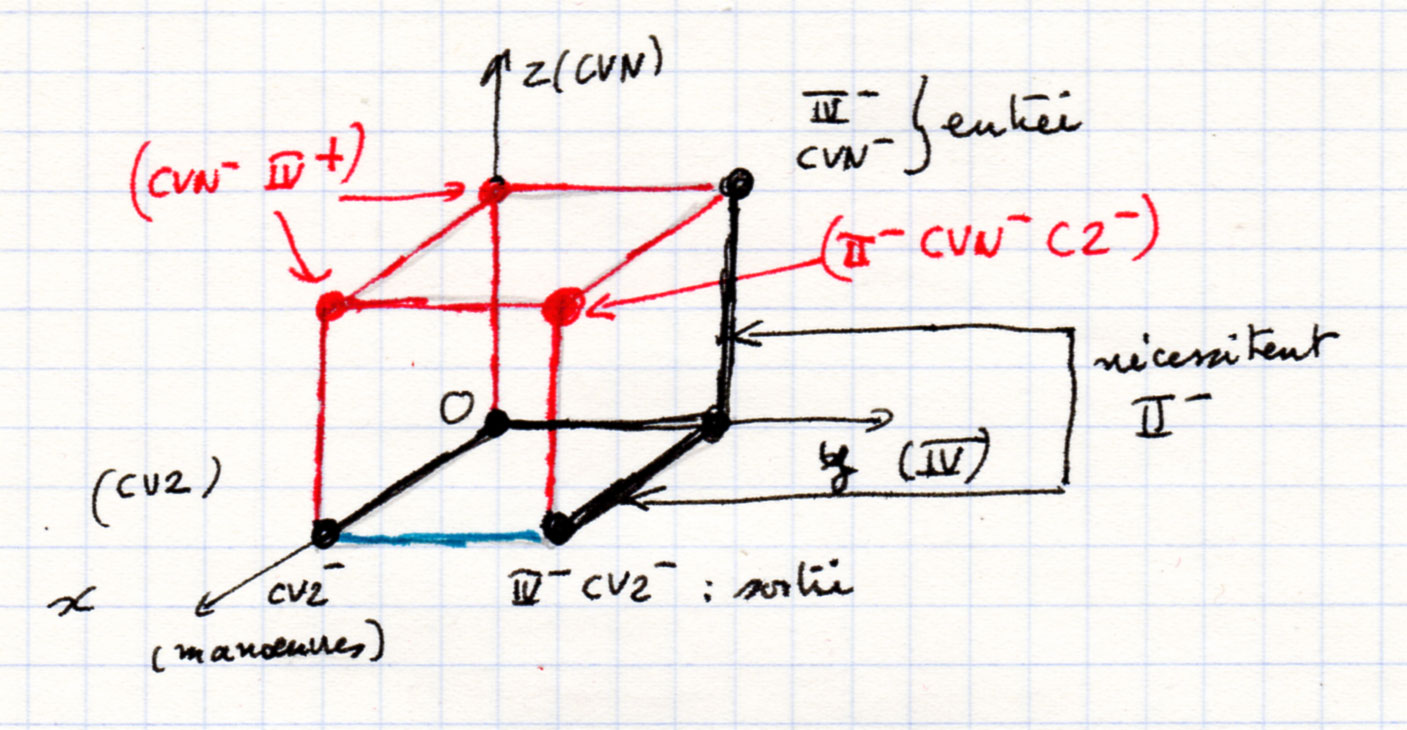 z (CVN)
IV⁻
CVN⁻ } entrée
(CVN⁻ IV⁺)
(II⁻ CVN⁻ C2⁻)
nécessitent
II⁻
O
y (IV)
(CV2)
x
CV2⁻
(manœuvres)
IV⁻ CV2⁻ : sortie